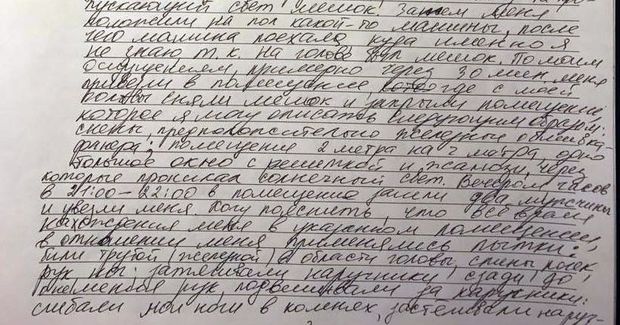 пускающий свет мешок. Затем меня
положили на пол какой-то машины, после
чего машина поехала, куда именно я
не знаю т.к. на голове был мешок. По моим
ощущениям, примерно через 30 мин. меня
привели в помещение, где с моей
головы сняли мешок и закрыли помещение
которое я могу описать следующим образом:
стены, предположительно железные обшивка-
фанера; помещение 2 метра на 2 метра, одно
большое окно с решеткой и жалюзи, через
которые проникал солнечный свет. Вечером часов
в 21:00-22:00 в помещение зашли два мужчины
и увезли меня. Могу пояснить, что все время
нахождения меня в указанном помещении,
в отношении меня применялись пытки:
били трубой (железной) в области головы, спины, почек,
рук, ног: затягивали наручники сзади до
онемения рук, подвешивали за наручники:
сгибали мои ноги в коленях, застегивали наруч-